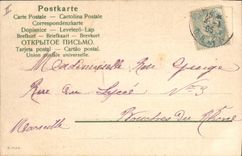 Postkarte
Carte Postale - Cartolina Postale
Correspondenzkarte
Dopisnice - Levelező-Lap
Brefkort - Briefkaart - Brevkort
ОТКРЫТОЕ ПИСЬМО.
Tarjeta postal - Cartão postal.
Union postale universelle.
Mademoiselle Rose
Rue du Lycée N° 3
Marseille Bouches du Rhône